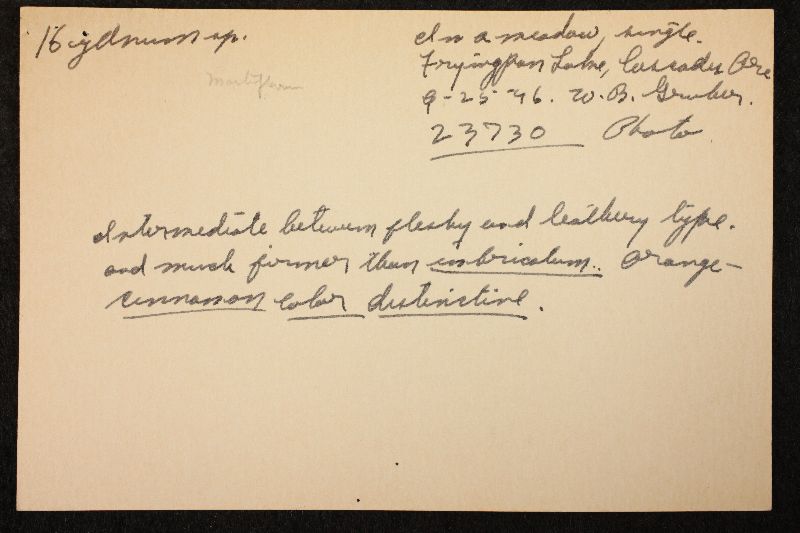 Hydnum sp.
In a meadow, single.
Fryingpan Lake, Cascades Ore
9-25-46. W. B. Gruber.
23730 Photo
Intermediate between fleshy and leathery type.
and much firmer than imbricatum. Orange-
cinnamon color distinctive.